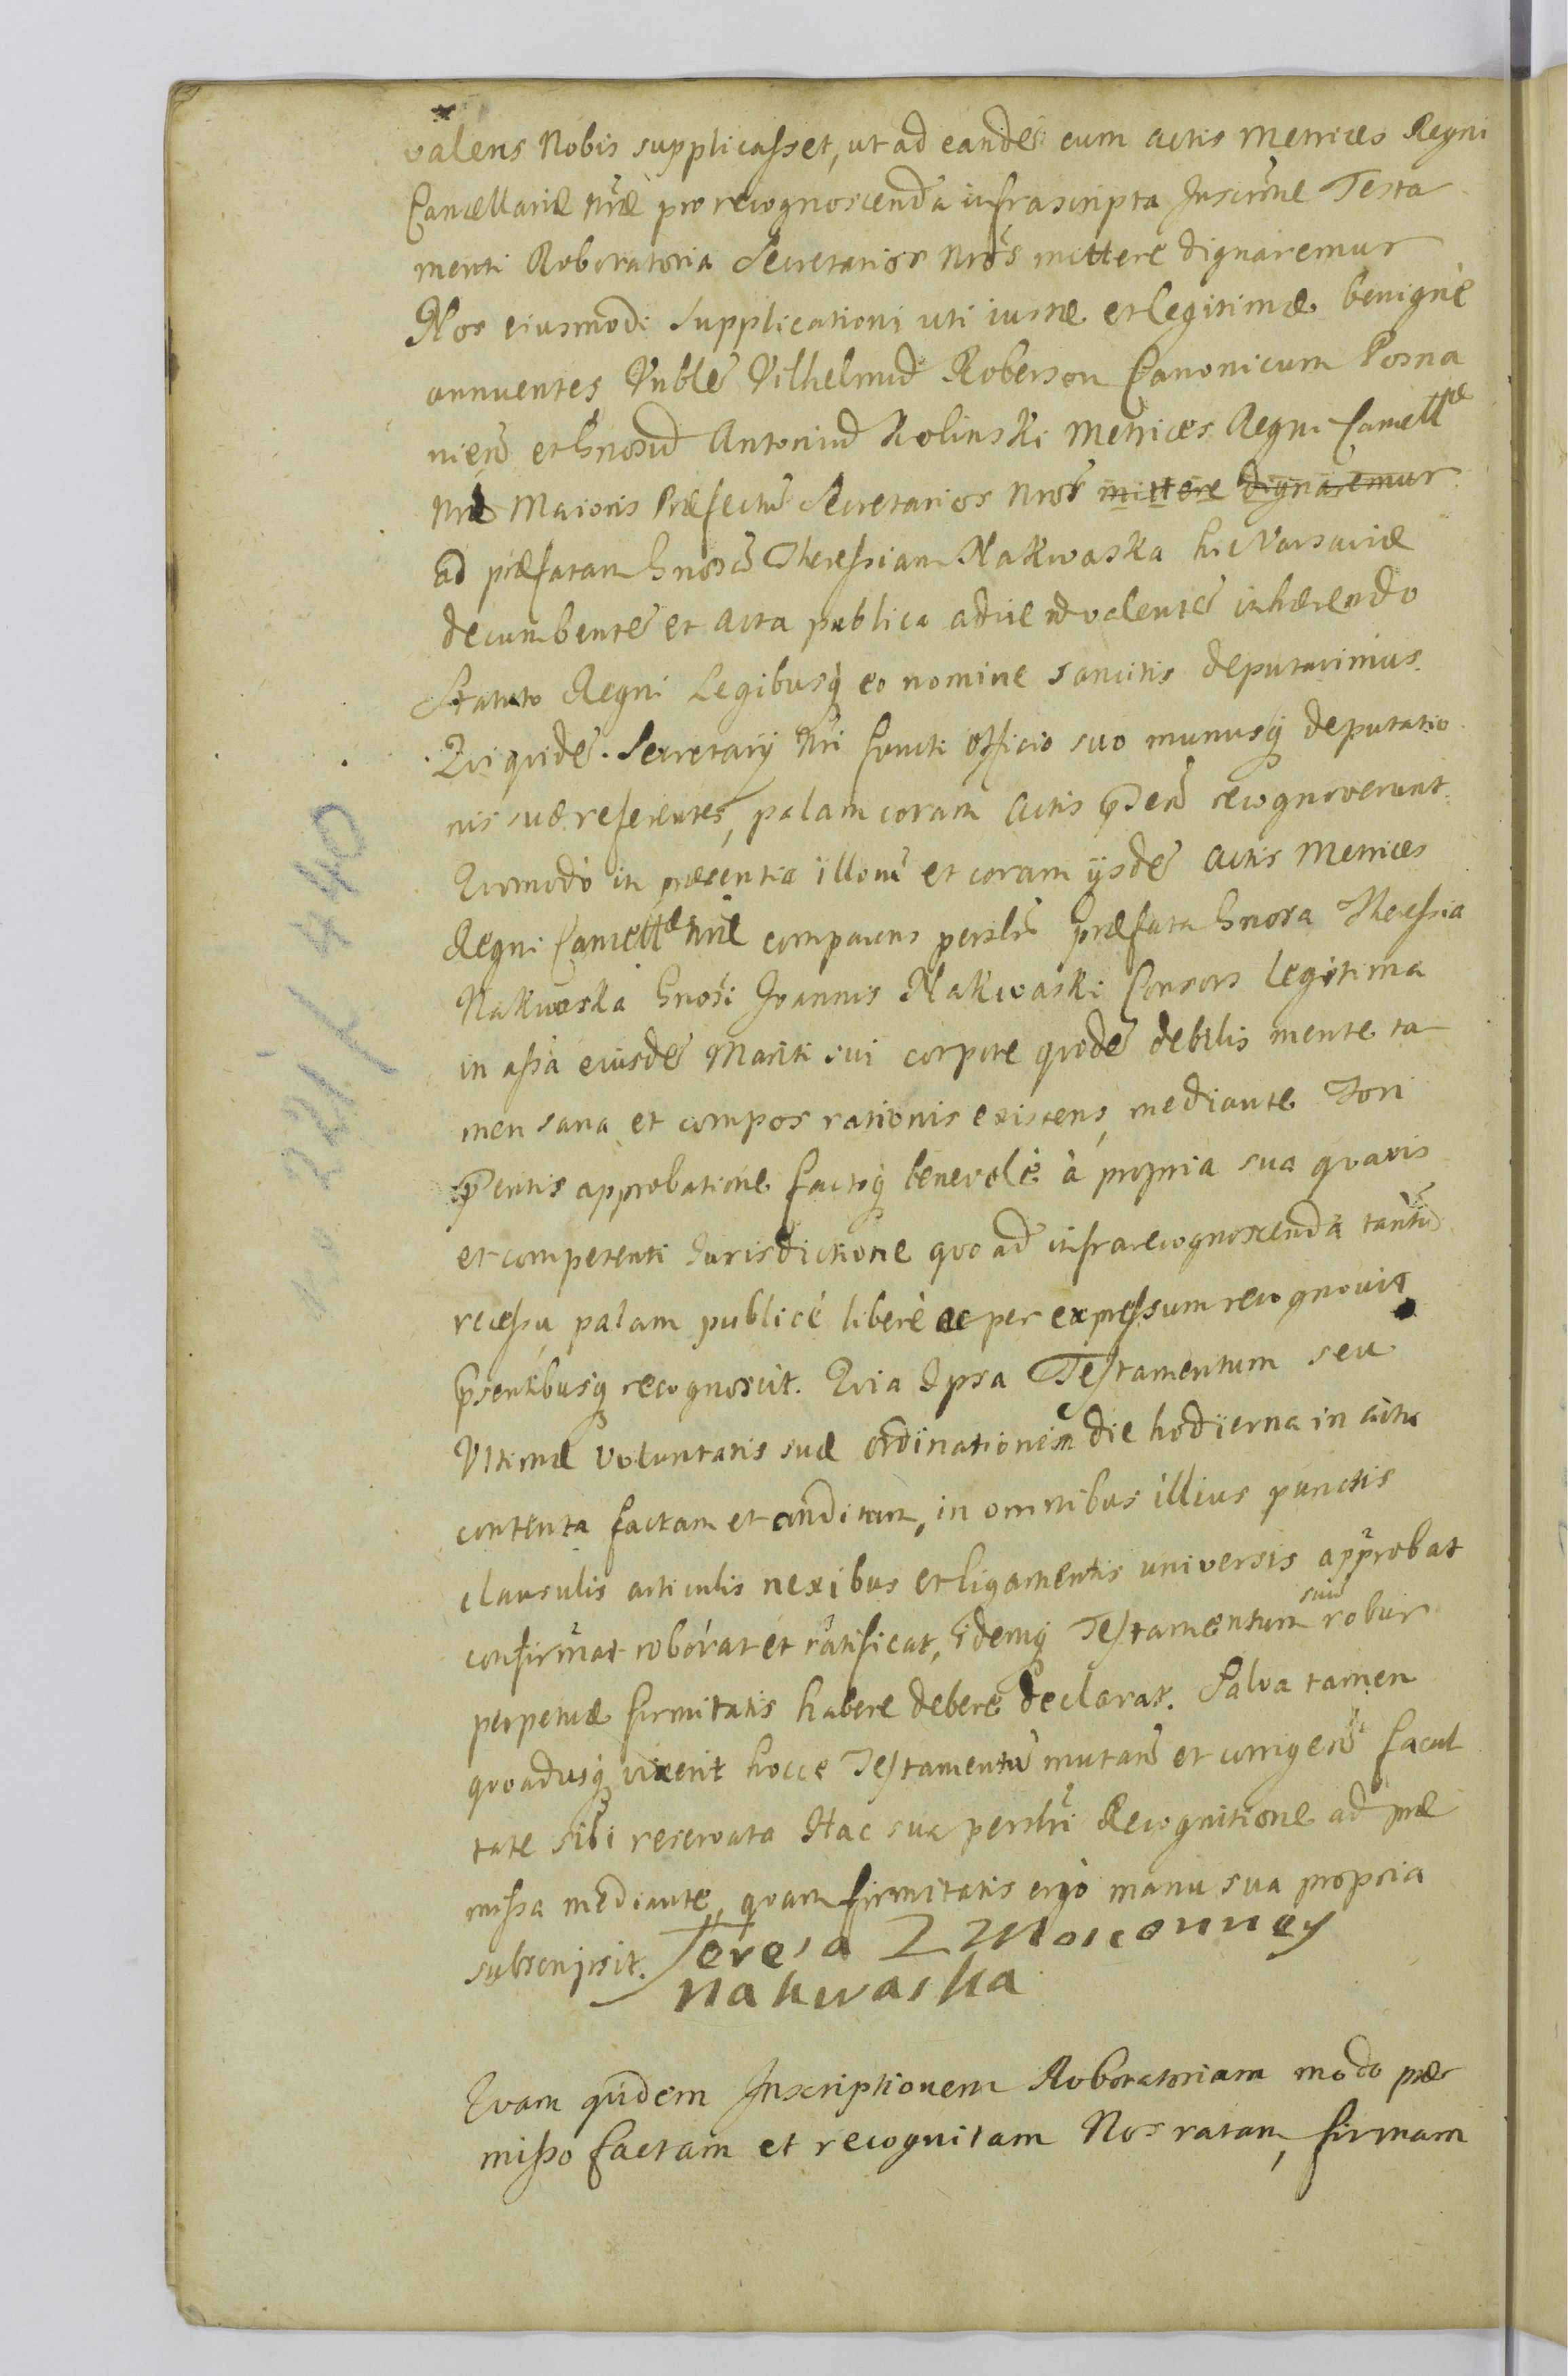 valens Nobis supplicasset, ut ad eandē cum actis Metrices Regni
Cancellariæ nr̃æ pro recognoscenda infrascripta Inscrip̃ne Testa
menti Roboratoria Secretarios nrõs mittere dignaremur
Nos eiusmodi supplicationi uti iustæ et legitimæ benignè
annuentes Vnblē Vilhelmũ Roberson Canonicum Posna
nieñ et Gnosũ Antoniũ Rolinski Metrices Regni Cancellæ
nr̃æ Maioris Præfectũ Secretarios nrõs mittere dignaremur
ad præfatam Gnosã Theressiam Nakwaska hic Varsaviæ
decumbentē et acta publica adire nõ valentē inhærendo
Statuto Regni Legibusq̃ eo nomine sancitis deputavimus.
Qui quidē Secretarij nr̃i functi officio suo munusq̃ deputatio
nis suæ referentes, palam coram actis p̃sen̄ recognoverunt.
Quomodo in præsentia illorũ et coram ijsdē actis Metrices
Regni Cancellæ nr̃æ comparens persl̃r præfata Gnosa Theressia
Nakwaska Gnosi Joannis Nakwaski Consors legitima
in assã eiusdē Mariti sui corpore quidē debilis mente ta
men sana et compos rationis existens, mediante Tori
p̃sentis approbatione factoq̃ benevolè à propria sua quavis
et competenti Jurisdictione quo ad infra recognoscenda tantũ
recessu, palam publicè liberè ac per expressum recognovit
p̃sentibusq̃ recognoscit. Quia Ipsa Testamentum seu
Ultimæ voluntatis suæ ordinationem die hodierna in actu
contenta factam et conditam, in omnibus illius punctis
clausulis articulis nexibus et ligamentis universis approbat
confirmat roborat et ratificat, idemq̃ Testamentum suũ robur
perpetuæ firmitatis habere debere declarat. Salva tamen
quoadusq̃ vixerit hocce Testamentũ mutan̄ et corrigen̄ facul
tate sibi reservata Hac sua persl̃ri Recognitione ad præ
missa mediante, quam firmitatis ergò manu sua propria
subscripsit. Teresa Z Mosconney
Nakwaska
Quam quidem Inscriptionem Roboratoriam modo præ
misso factam et recognitam Nos ratam, firmam